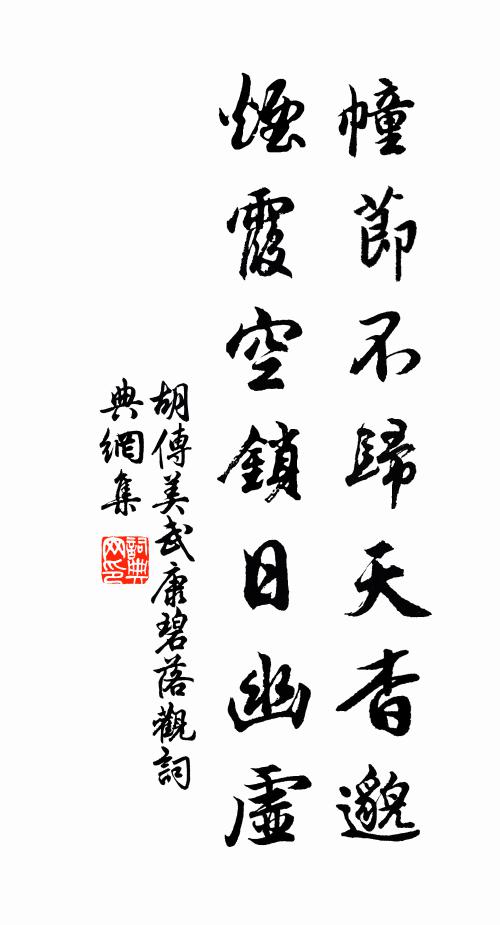 幢節不歸天杳邈
煙霞空鎖日幽虛
胡傳美武康碧落觀詞
典網集
詞典
网印